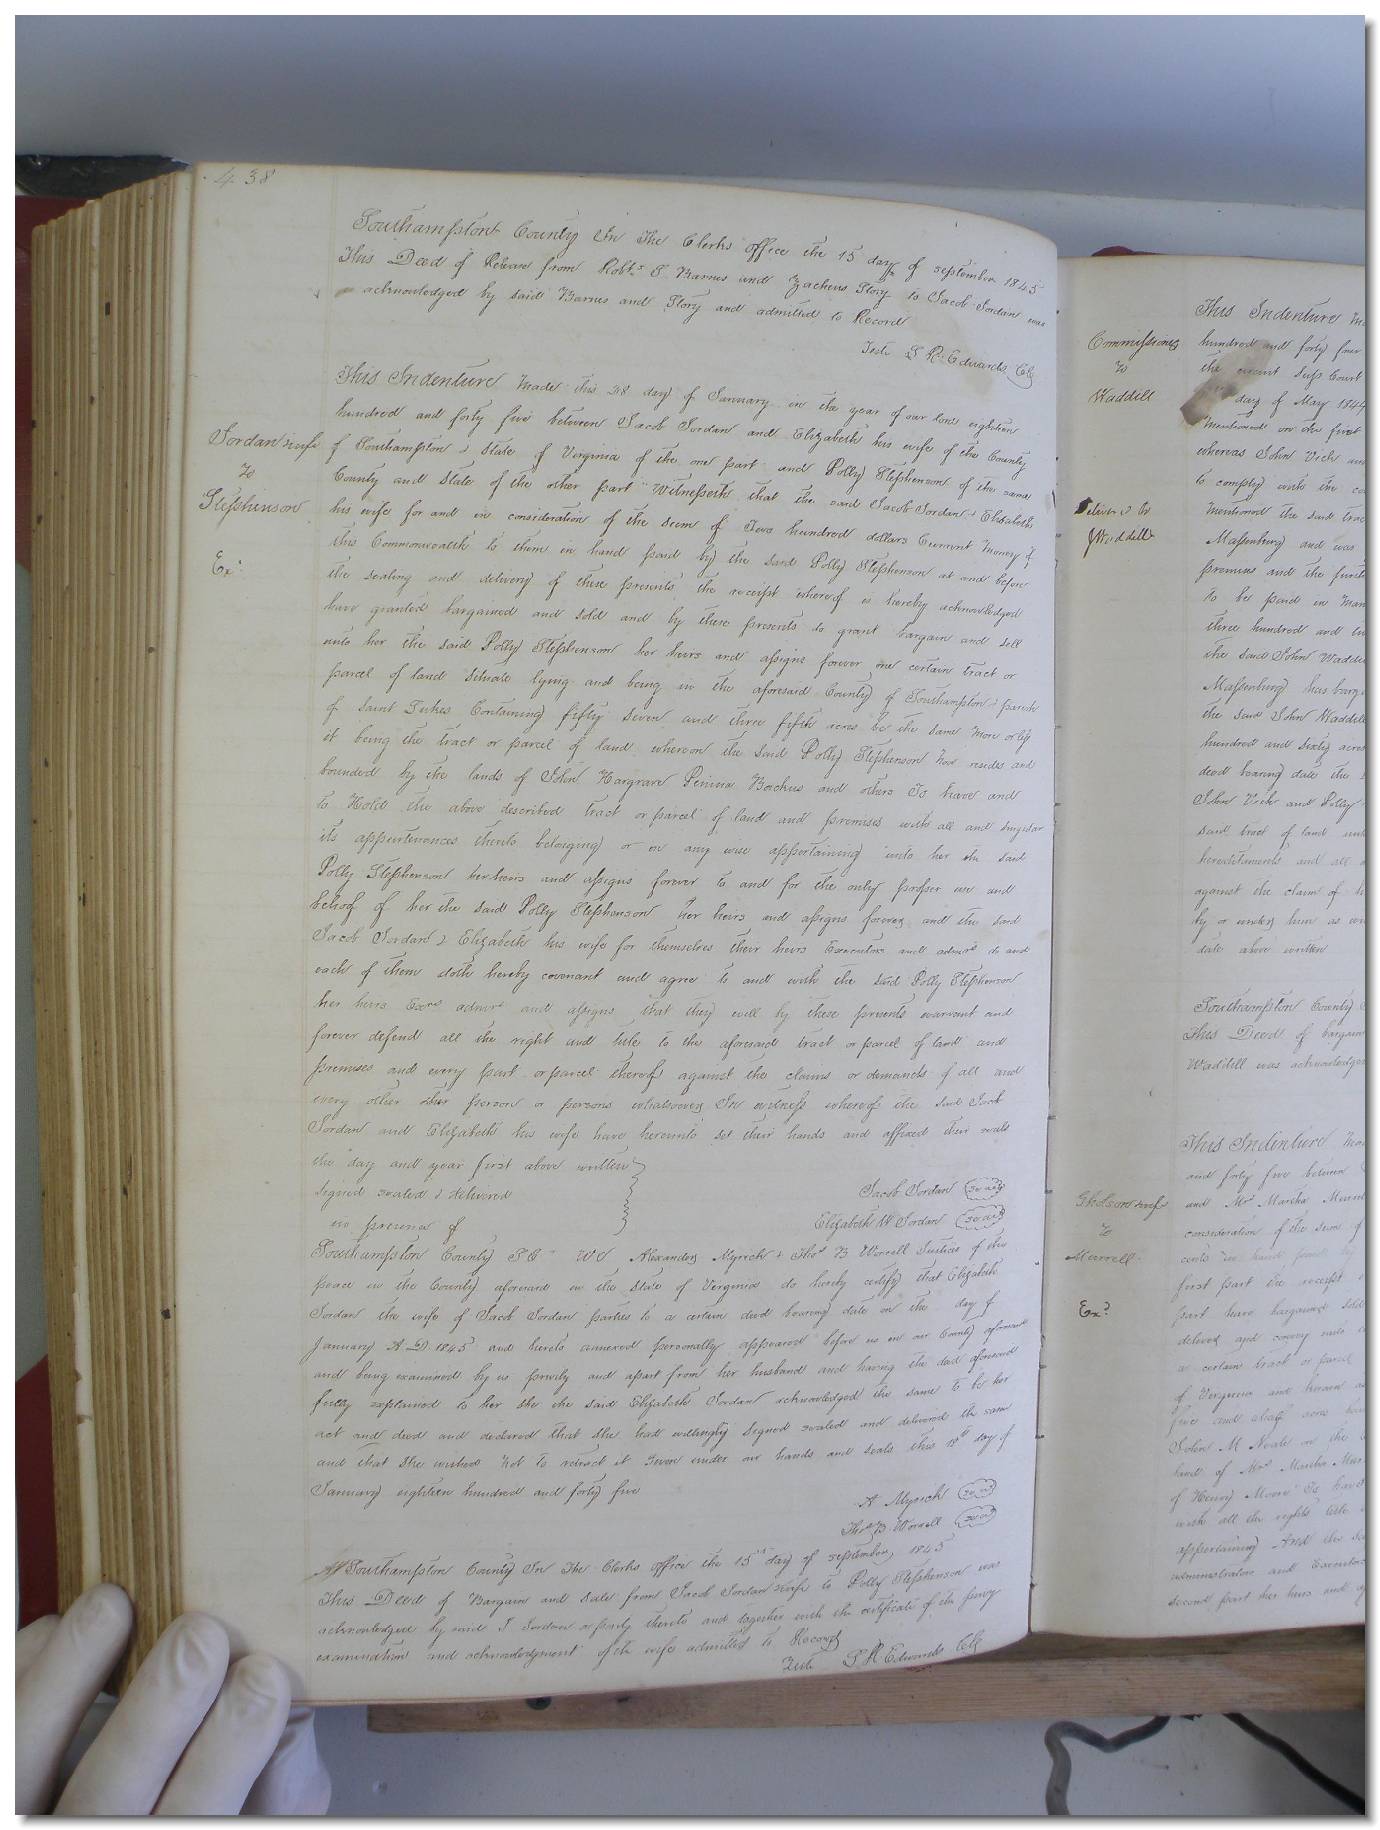 438
Southampton County In The Clerks office the 15 day of september 1845
This Deed of Release from Robt. S. Barnes and Zacheus Story to Jacob Jordan was
acknowledged by said Barnes and Story and admitted to Record
Teste L R Edwards Clk
Jordan & wife
to
Stephenson
Ex:
This Indenture Made this 18 day of January in the year of our lord eighteen
hundred and forty five between Jacob Jordan and Elizabeth his wife of the County
of Southampton & State of Virginia of the one part and Polly Stephenson of the same
County and State of the other part Witnesseth that the said Jacob Jordan & Elizabeth
his wife for and in consideration of the sum of Two hundred dollars Current Money of
this Commonwealth to them in hand paid by the said Polly Stephenson at and before
the sealing and delivery of these presents the receipt whereof is hereby acknowledged
have granted bargained and sold and by these presents do grant bargain and sell
unto her the said Polly Stephenson her heirs and assigns forever one certain tract or
parcel of land Situate lying and being in the aforesaid County of Southampton & parish
of Saint Lukes Containing fifty seven and three fifth acres be the same more or less
it being the tract or parcel of land whereon the said Polly Stephenson now resides and
bounded by the lands of John Hargrave Peninia Backus and others To have and
to Hold the above described tract or parcel of land and premises with all and singular
its appurtenances thereto belonging or in any wise appertaining unto her the said
Polly Stephenson her heirs and assigns forever to and for the only proper use and
behoof of her the said Polly Stephenson her heirs and assigns forever and the said
Jacob Jordan & Elizabeth his wife for themselves their heirs Executors and admrs do and
each of them doth hereby covenant and agree to and with the said Polly Stephenson
her heirs Exors admrs and assigns that they will by these presents warrant and
forever defend all the right and title to the aforesaid tract or parcel of land and
premises and every part or parcel thereof against the claims or demands of all and
every other person or persons whatsoever In witness whereof the said Jacob
Jordan and Elizabeth his wife have hereunto set their hands and affixed their seals
the day and year first above written
Signed sealed & delivered
in presence of
Jacob Jordan seal
Elizabeth W Jordan seal
Southampton County S C We Alexander Myrick & Thos B Worrell Justices of the
peace in the County aforesaid in the State of Virginia do hereby certify that Elizabeth
Jordan the wife of Jacob Jordan parties to a certain deed bearing date on the day of
January A. D. 1845 and hereto annexed personally appeared before us in our County aforesaid
and being examined by us privily and apart from her husband and having the deed aforesaid
fully explained to her she the said Elizabeth Jordan acknowledged the same to be her
act and deed and declared that she had willingly signed sealed and delivered the same
and that she wished not to retract it Given under our hands and seals this 18th day of
January eighteen hundred and forty five
A Myrick seal
Thos B. Worrell seal
Southampton County In The Clerks office the 15th day of september 1845
This Deed of Bargain and Sale from Jacob Jordan & wife to Polly Stephenson was
acknowledged by said J Jordan a party thereto and together with the certificate of the privy
examination and acknowledgment of the wife admitted to Record
Teste L R Edwards Clk
Commissioners
to
Waddill
Delivered to
J Waddill
This Indenture
hundred and forty four
the circuit Sup Court
day of May 1844
Mentioned on the first
whereas John Vick
to comply with the
Mentioned the said trac
Massenburg and was
premises and the furth
to be paid in Man
three hundred and
the said John Wadd
Massenburg has barg
the said John Waddill
hundred and sixty acres
deed bearing date the
John Vick and Polly
said tract of land
hereditaments and all
against the claim of
by or under him as
date above written
Southampton County
This Deed of bargain
Waddill was acknowledged
Gholson & wife
to
Murrell
Ex?
This Indenture
and forty five between
and Mrs Martha
consideration of the sum of
cents in hand paid
first part the receipt
part have bargained sold
deliver and convey unto
a certain tract or parcel
of Virginia and known
five and a half acres
John M Neale on the
land of Mrs Martha
of Henry Moore To have
with all the rights title
appertaining And the
administrators and Executors
second part her heirs and